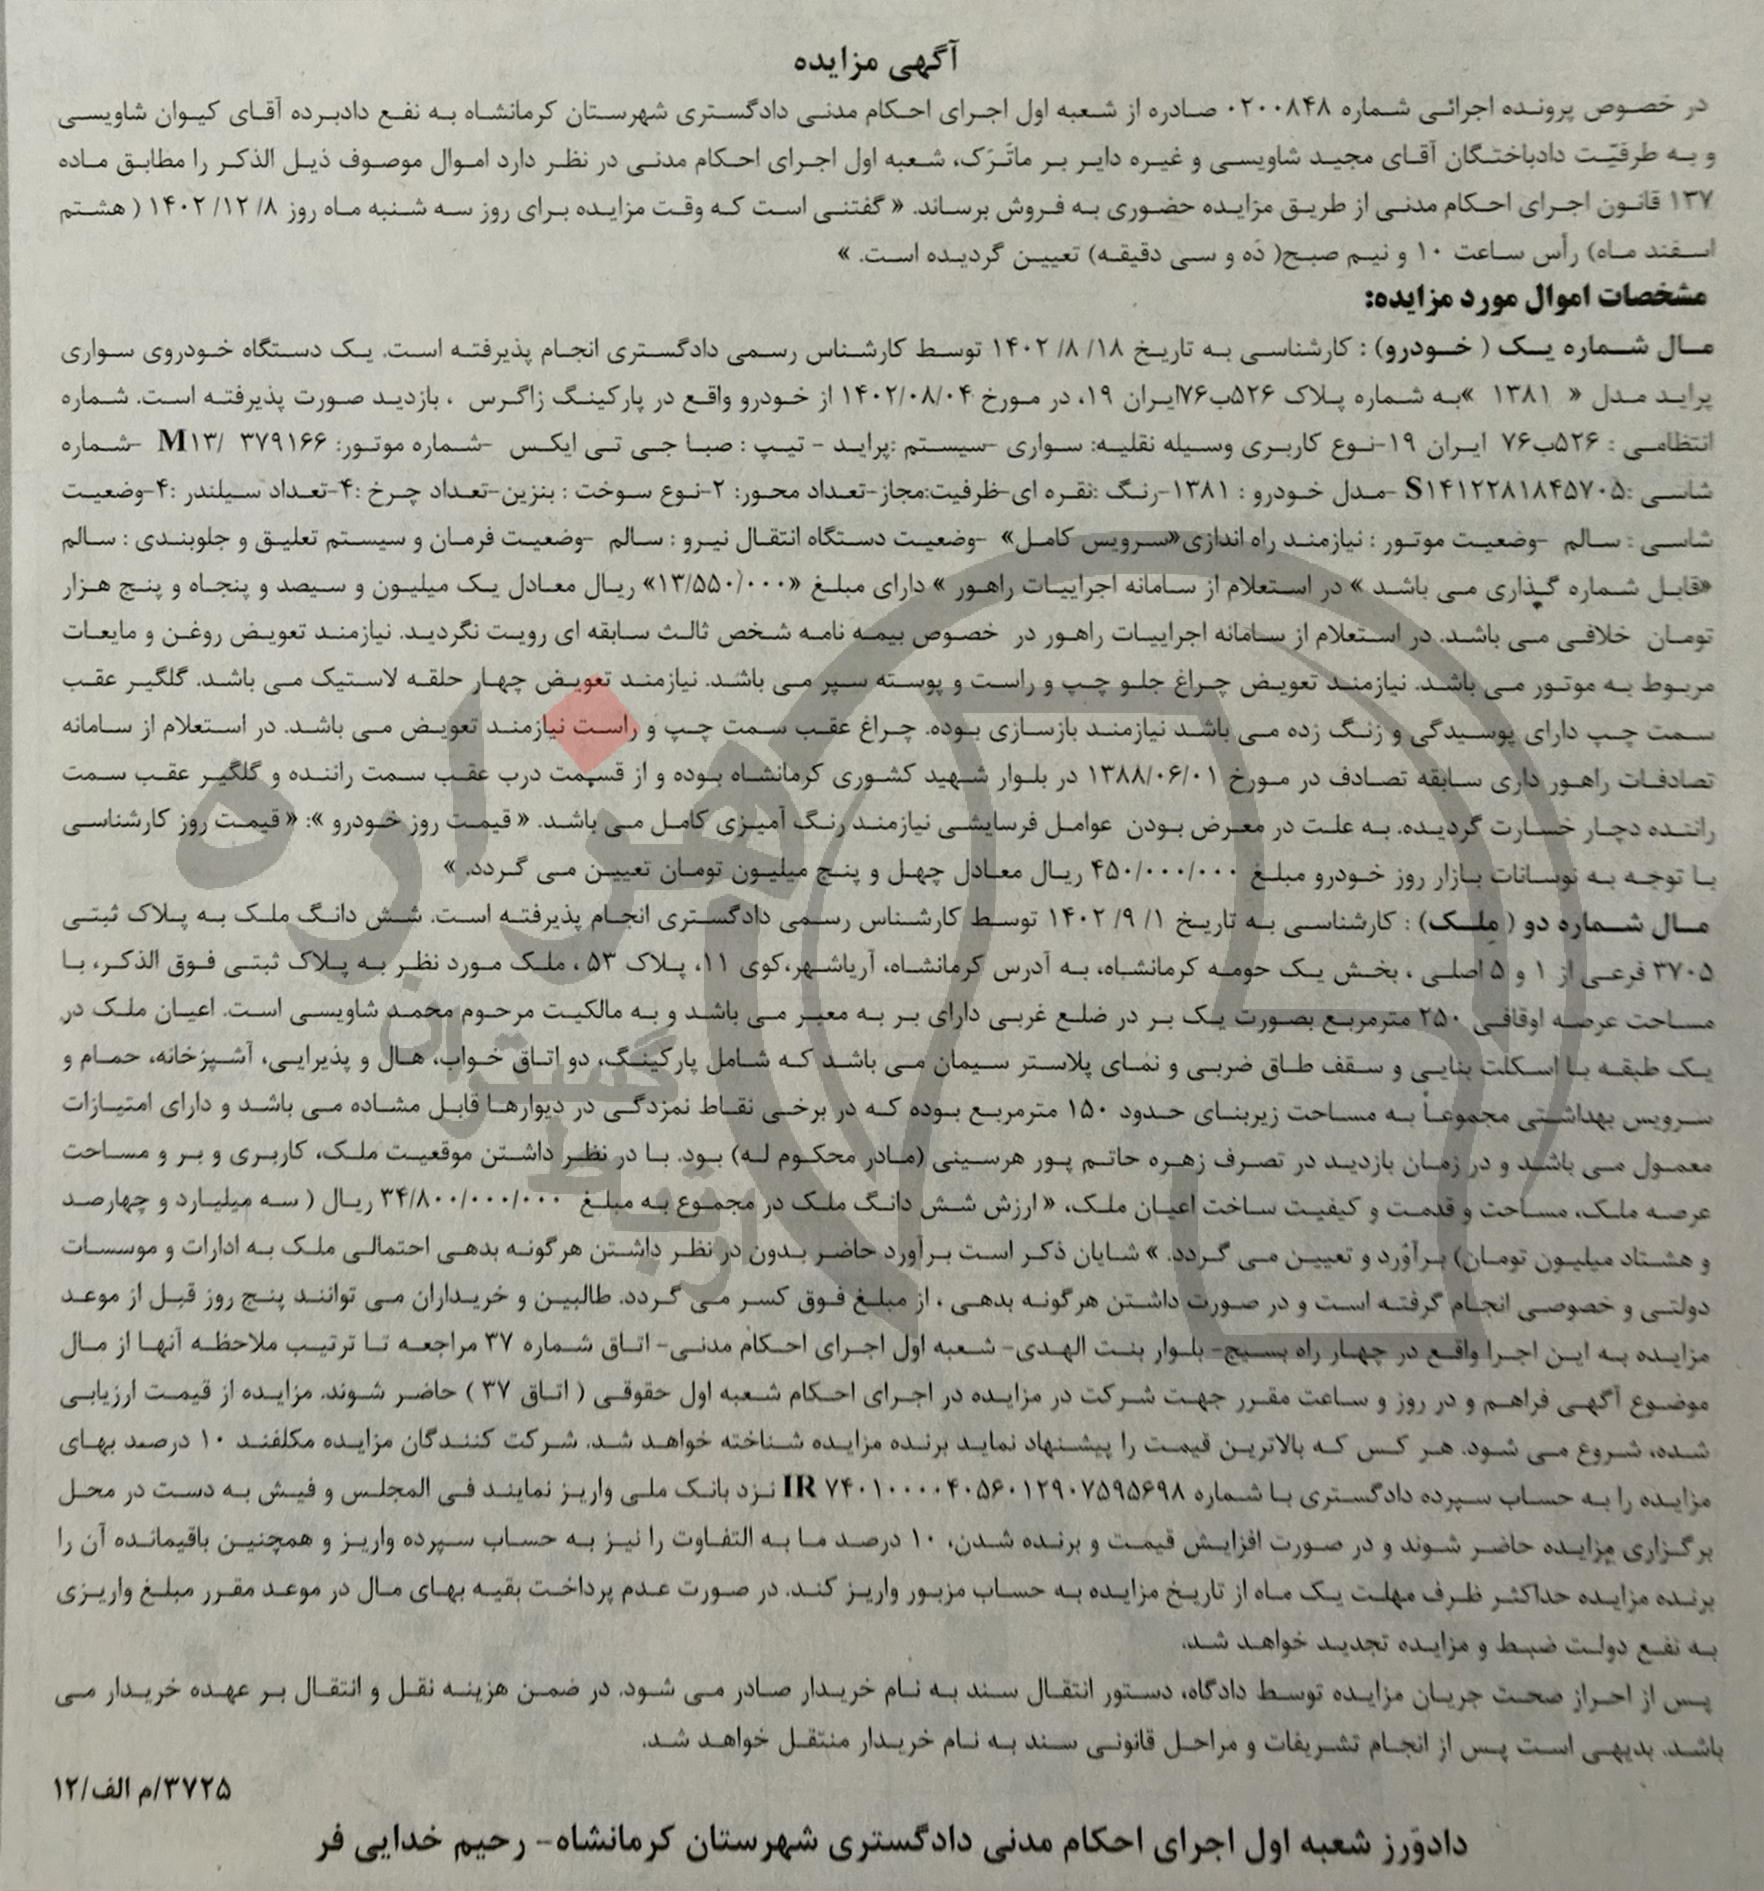 آگهی مزایده
در خصوص پرونده اجرائی شماره ۰۲۰۰۸۴۸ صادره از شعبه اول اجرای احکام مدنی دادگستری شهرستان کرمانشاه به نفع دادبرده آقای کیوان شاویسی
و به طرفیّت دادباختگان آقای مجید شاویسی و غیره دایر بر ماتَرَک، شعبه اول اجرای احکام مدنی در نظر دارد اموال موصوف ذیل الذکر را مطابق ماده
۱۳۷ قانون اجرای احکام مدنی از طریق مزایده حضوری به فروش برساند. « گفتنی است که وقت مزایده برای روز سه شنبه ماه روز ۸/ ۱۲/ ۱۴۰۲ ( هشتم
اسفند ماه) رأس ساعت ۱۰ و نیم صبح( دَه و سی دقیقه) تعیین گردیده است. »
مشخصات اموال مورد مزایده:
مال شماره یک ( خودرو) : کارشناسی به تاریخ ۱۸/ ۸/ ۱۴۰۲ توسط کارشناس رسمی دادگستری انجام پذیرفته است. یک دستگاه خودروی سواری
پراید مدل « ۱۳۸۱ »به شماره پلاک ۵۲۶ب۷۶ایران ۱۹، در مورخ ۱۴۰۲/۰۸/۰۴ از خودرو واقع در پارکینگ زاگرس ، بازدید صورت پذیرفته است. شماره
انتظامی : ۵۲۶ب۷۶ ایران ۱۹-نوع کاربری وسیله نقلیه: سواری -سیستم :پراید - تیپ : صبا جی تی ایکس -شماره موتور: M۱۳/ ۳۷۹۱۶۶ -شماره
شاسی :S۱۴۱۲۲۸۱۸۴۵۷۰۵ -مدل خودرو : ۱۳۸۱-رنگ :نقره ای-ظرفیت:مجاز-تعداد محور: ۲-نوع سوخت : بنزین-تعداد چرخ :۴-تعداد سیلندر :۴-وضعیت
شاسی : سالم -وضعیت موتور : نیازمند راه اندازی«سرویس کامل» -وضعیت دستگاه انتقال نیرو : سالم -وضعیت فرمان و سیستم تعلیق و جلوبندی : سالم
«قابل شماره گذاری می باشد » در استعلام از سامانه اجراییات راهور » دارای مبلغ «۱۳/۵۵۰/۰۰۰» ریال معادل یک میلیون و سیصد و پنجاه و پنج هزار
تومان خلافی می باشد. در استعلام از سامانه اجراییات راهور در خصوص بیمه نامه شخص ثالث سابقه ای رویت نگردید. نیازمند تعویض روغن و مایعات
مربوط به موتور می باشد. نیازمند تعویض چراغ جلو چپ و راست و پوسته سپر می باشد. نیازمند تعویض چهار حلقه لاستیک می باشد. گلگیر عقب
سمت چپ دارای پوسیدگی و زنگ زده می باشد نیازمند بازسازی بوده. چراغ عقب سمت چپ و راست نیازمند تعویض می باشد. در استعلام از سامانه
تصادفات راهور داری سابقه تصادف در مورخ ۱۳۸۸/۰۶/۰۱ در بلوار شهید کشوری کرمانشاه بوده و از قسمت درب عقب سمت راننده و گلگیر عقب سمت
راننده دچار خسارت گردیده. به علت در معرض بودن عوامل فرسایشی نیازمند رنگ آمیزی کامل می باشد. « قیمت روز خودرو »: « قیمت روز کارشناسی
با توجه به نوسانات بازار روز خودرو مبلغ ۴۵۰/۰۰۰/۰۰۰ ریال معادل چهل و پنج میلیون تومان تعیین می گردد. »
مال شماره دو ( مِلک) : کارشناسی به تاریخ ۱/ ۹/ ۱۴۰۲ توسط کارشناس رسمی دادگستری انجام پذیرفته است. شش دانگ ملک به پلاک ثبتی
۳۷۰۵ فرعی از ۱ و ۵ اصلی ، بخش یک حومه کرمانشاه، به آدرس کرمانشاه، آریاشهر،کوی ۱۱، پلاک ۵۳ ، ملک مورد نظر به پلاک ثبتی فوق الذکر، با
مساحت عرصه اوقافی ۲۵۰ مترمربع بصورت یک بر در ضلع غربی دارای بر به معبر می باشد و به مالکیت مرحوم محمد شاویسی است. اعیان ملک در
یک طبقه با اسکلت بنایی و سقف طاق ضربی و نمای پلاستر سیمان می باشد که شامل پارکینگ، دو اتاق خواب، هال و پذیرایی، آشپزخانه، حمام و
سرویس بهداشتی مجموعاً به مساحت زیربنای حدود ۱۵۰ مترمربع بوده که در برخی نقاط نمزدگی در دیوارها قابل مشاده می باشد و دارای امتیازات
معمول می باشد و در زمان بازدید در تصرف زهره حاتم پور هرسینی (مادر محکوم له) بود. با در نظر داشتن موقعیت ملک، کاربری و بر و مساحت
عرصه ملک، مساحت و قدمت و کیفیت ساخت اعیان ملک، « ارزش شش دانگ ملک در مجموع به مبلغ ۳۴/۸۰۰/۰۰۰/۰۰۰ ریال ( سه میلیارد و چهارصد
و هشتاد میلیون تومان) برآوُرد و تعیین می گردد. » شایان ذکر است برآورد حاضر بدون در نظر داشتن هرگونه بدهی احتمالی ملک به ادارات و موسسات
دولتی و خصوصی انجام گرفته است و در صورت داشتن هرگونه بدهی ، از مبلغ فوق کسر می گردد. طالبین و خریداران می توانند پنج روز قبل از موعد
مزایده به این اجرا واقع در چهار راه بسیج- بلوار بنت الهدی- شعبه اول اجرای احکام مدنی- اتاق شماره ۳۷ مراجعه تا ترتیب ملاحظه آنها از مال
موضوع آگهی فراهم و در روز و ساعت مقرر جهت شرکت در مزایده در اجرای احکام شعبه اول حقوقی ( اتاق ۳۷ ) حاضر شوند. مزایده از قیمت ارزیابی
شده، شروع می شود. هر کس که بالاترین قیمت را پیشنهاد نماید برنده مزایده شناخته خواهد شد. شرکت کنندگان مزایده مکلفند ۱۰ درصد بهای
مزایده را به حساب سپرده دادگستری با شماره IR ۷۴۰۱۰۰۰۰۴۰۵۶۰۱۲۹۰۷۵۹۵۶۹۸ نزد بانک ملی واریز نمایند فی المجلس و فیش به دست در محل
برگزاری مزایده حاضر شوند و در صورت افزایش قیمت و برنده شدن، ۱۰ درصد ما به التفاوت را نیز به حساب سپرده واریز و همچنین باقیمانده آن را
برنده مزایده حداکثر ظرف مهلت یک ماه از تاریخ مزایده به حساب مزبور واریز کند. در صورت عدم پرداخت بقیه بهای مال در موعد مقرر مبلغ واریزی
به نفع دولت ضبط و مزایده تجدید خواهد شد.
پس از احراز صحت جریان مزایده توسط دادگاه، دستور انتقال سند به نام خریدار صادر می شود. در ضمن هزینه نقل و انتقال بر عهده خریدار می
باشد. بدیهی است پس از انجام تشریفات و مراحل قانونی سند به نام خریدار منتقل خواهد شد.
۳۷۲۵/م الف/۱۲
دادوَرز شعبه اول اجرای احکام مدنی دادگستری شهرستان کرمانشاه- رحیم خدایی فر